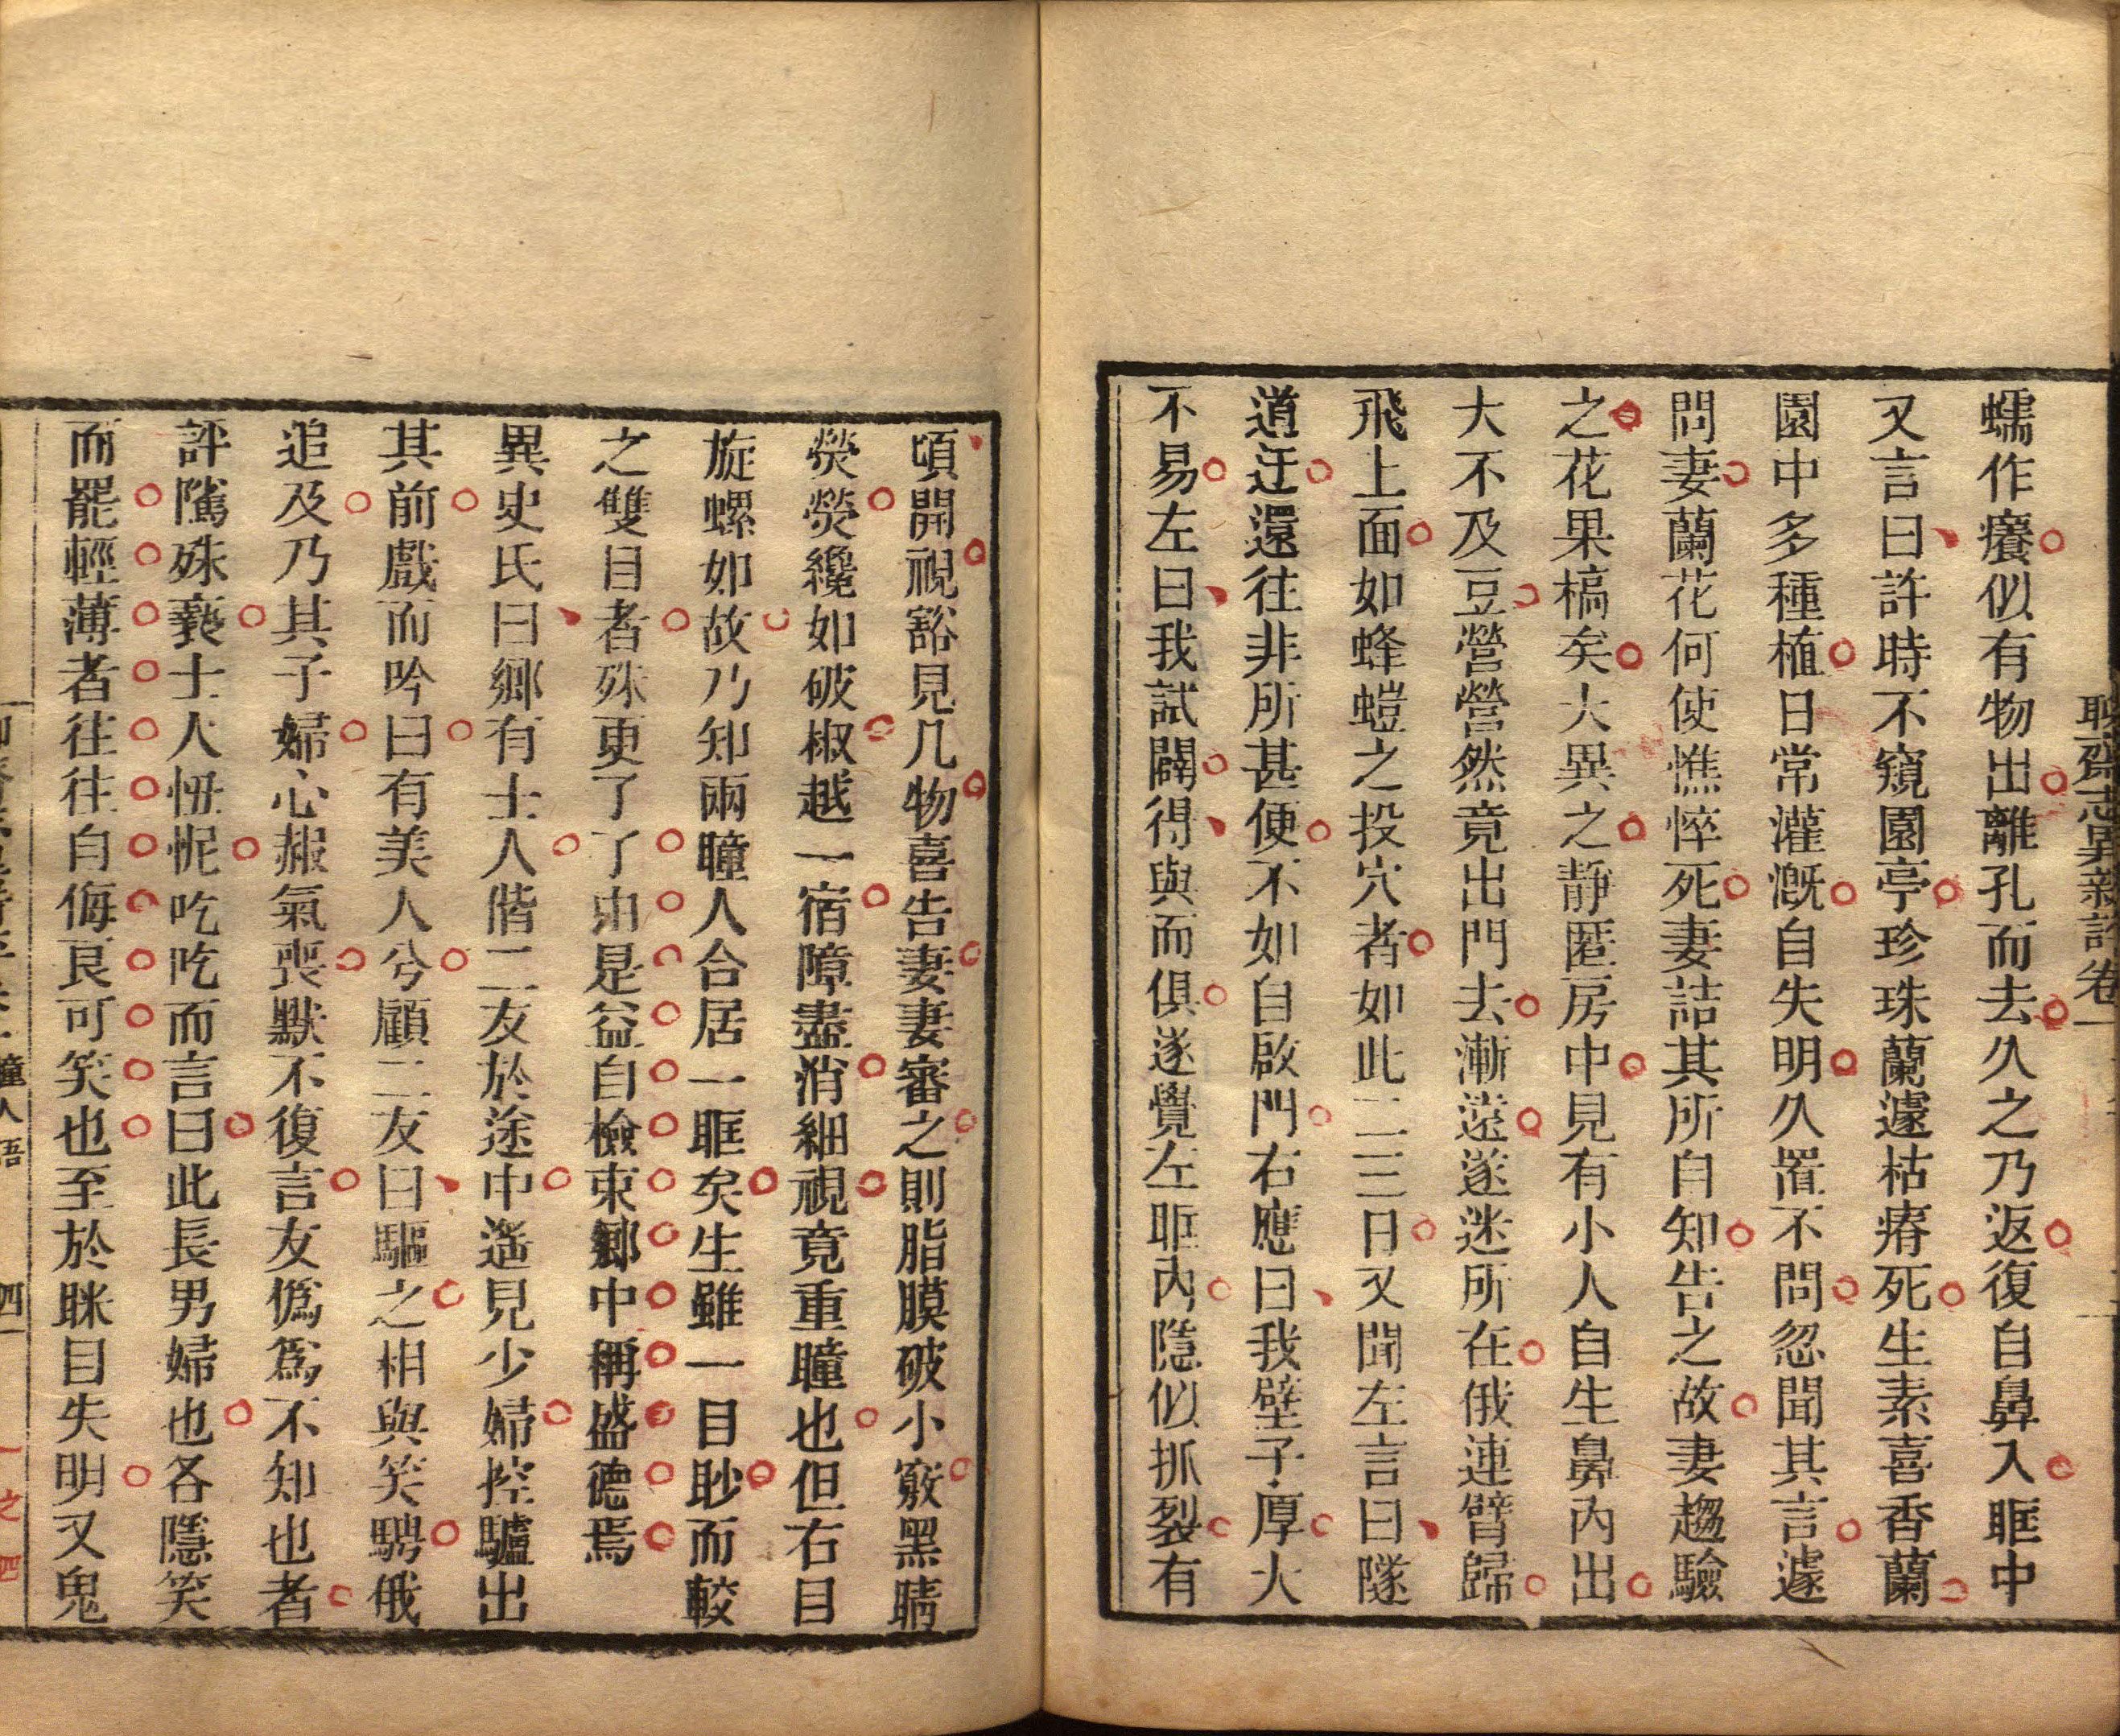 聊齋志異新評卷一
蠕作癢似有物出離孔而去久之乃返復自鼻入眶中
又言曰許時不窺園亭珍珠蘭遽枯瘠死生素喜香蘭
園中多種植日常灌溉自失明久置不問忽聞其言遽
問妻蘭花何使憔悴死妻詰其所自知告之故妻趨驗
之花果槁矣大異之靜匿房中見有小人自生鼻內出
大不及豆營營然竟出門去漸遠遂迷所在俄連臂歸
飛上面如蜂螘之投穴者如此二三日又聞左言曰隧
道迂還往非所甚便不如自啟門右應曰我壁子厚大
不易左曰我試闢得與而俱遂覺左眶內隱似抓裂有
頃開視豁見几物喜告妻妻審之則脂膜破小竅黑睛
熒熒纔如破椒越一宿障盡消細視竟重瞳也但右目
旋螺如故乃知兩瞳人合居一眶矣生雖一目眇而較
之雙目者殊更了了由是益自檢束鄉中稱盛德焉
異史氏曰鄉有士人偕二友於途中遙見少婦控驢出
其前戲而吟曰有美人兮顧二友曰驅之相與笑騁俄
追及乃其子婦心赧氣喪默不復言友偽爲不知也者
評隲殊褻士人忸怩吃吃而言曰此長男婦也各隱笑
而罷輕薄者往往自侮良可笑也至於眯目失明又鬼
瞳人語
四